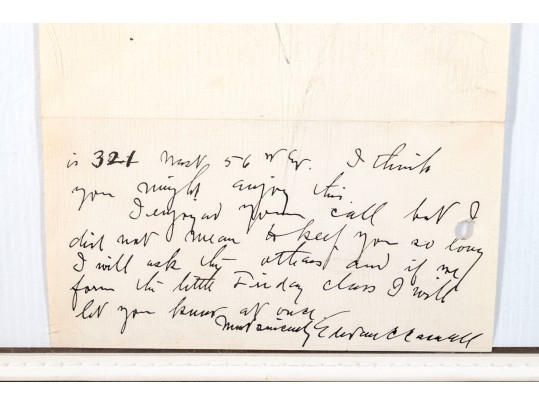 is 321 West 56th St. I think
you might enjoy this.
I enjoyed your call but I
did not mean to keep you so long
I will ask the others and if we
form the little Friday class I will
let you know at once.
Most sincerely